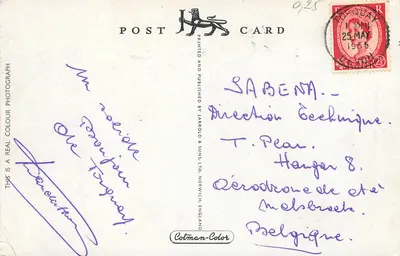 0,25
POST CARD
TORQUAY
25 MAY
1966
DEVON
THIS IS A REAL COLOUR PHOTOGRAPH
PRINTED AND PUBLISHED BY JARROLD & SONS LTD, NORWICH, ENGLAND
Un
Bonjour
De Torquay.
SABENA.-
Direction Technique.
T.
Hangar 8.
Aérodrome de
Melsbroek
Belgique.
Cotman-Color